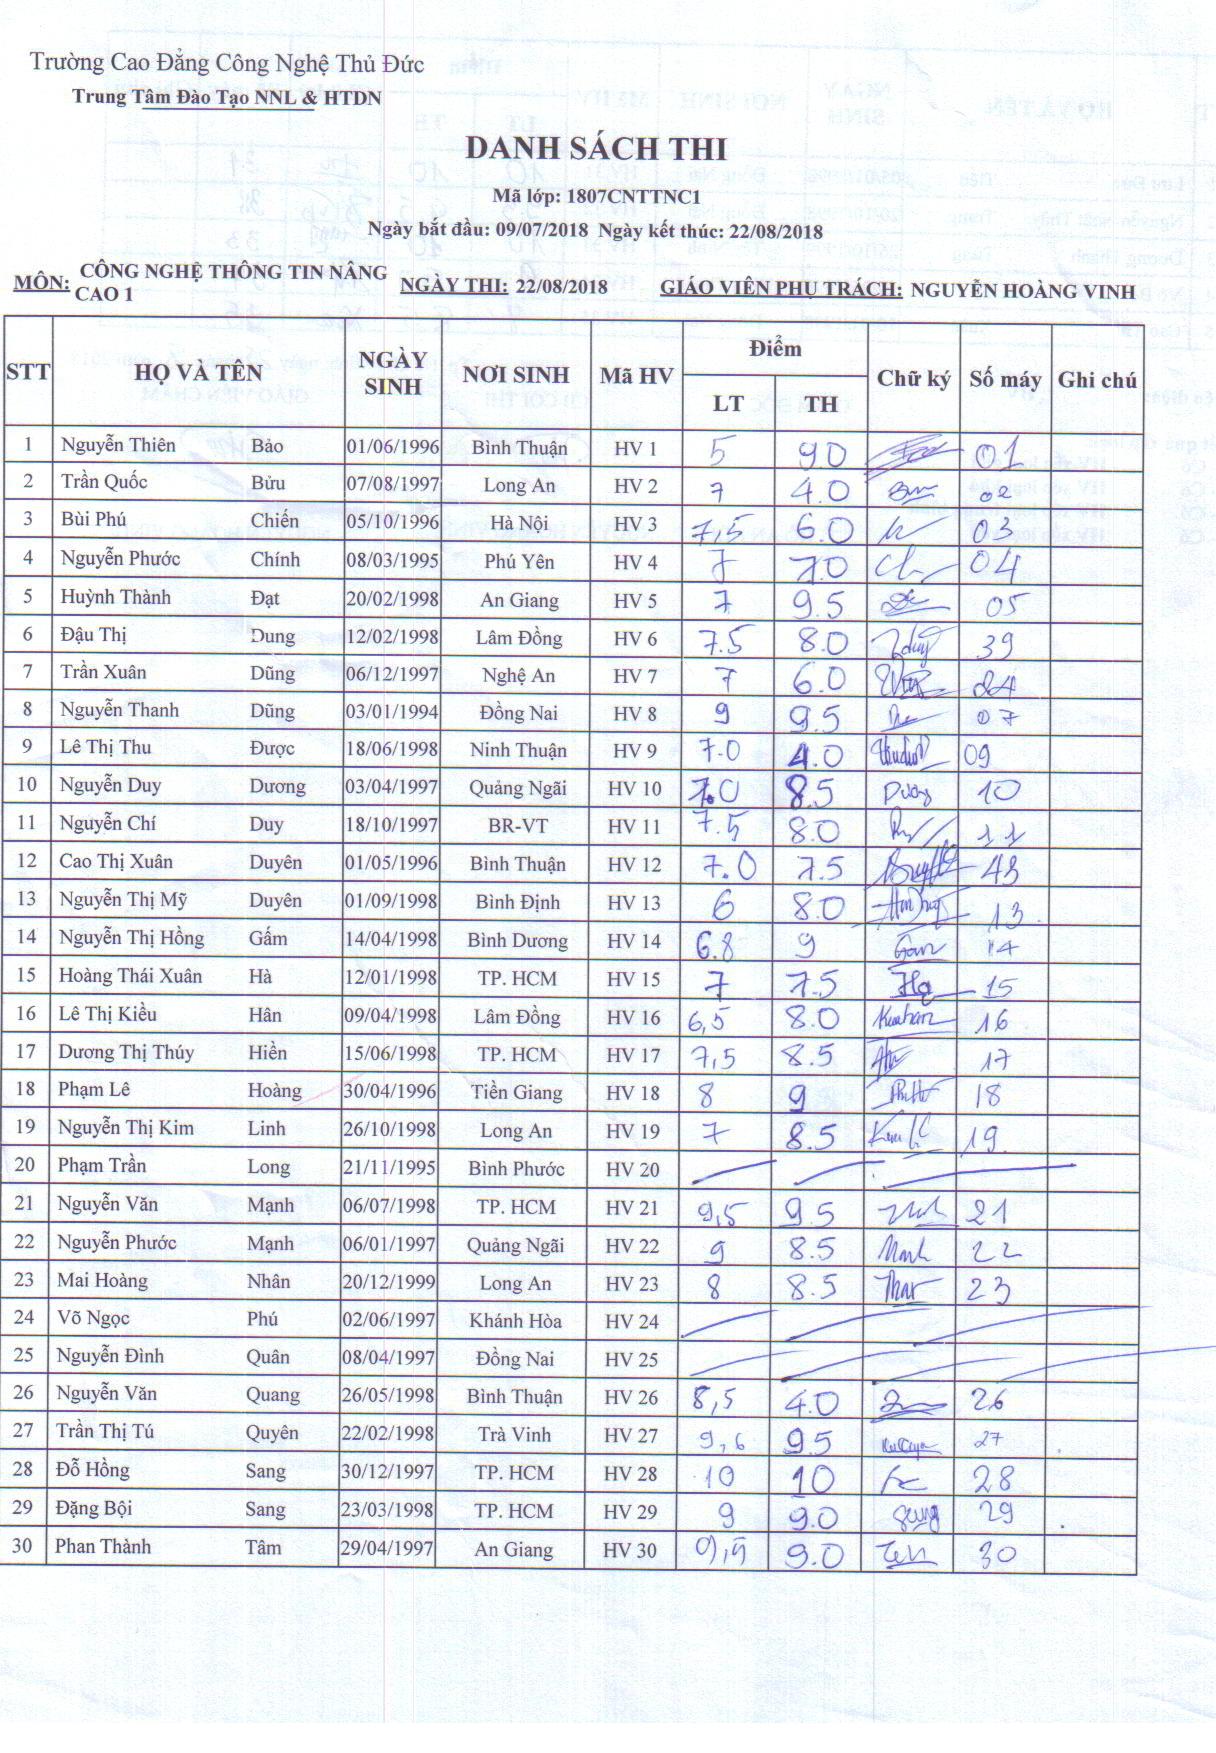 Trường Cao Đẳng Công Nghệ Thủ Đức
Trung Tâm Đào Tạo NNL & HTDN
DANH SÁCH THI
Mã lớp: 1807CNTTNC1
Ngày bắt đầu: 09/07/2018 Ngày kết thúc: 22/08/2018
MÔN: CÔNG NGHỆ THÔNG TIN NÂNG CAO 1 NGÀY THI: 22/08/2018 GIÁO VIÊN PHỤ TRÁCH: NGUYỄN HOÀNG VINH
STT HỌ VÀ TÊN NGÀY SINH NƠI SINH Mã HV Điểm Chữ ký Số máy Ghi chú
LT TH
1 Nguyễn Thiên Bảo 01/06/1996 Bình Thuận HV 1 5 9.0 01
2 Trần Quốc Bửu 07/08/1997 Long An HV 2 7 4.0 02
3 Bùi Phú Chiến 05/10/1996 Hà Nội HV 3 7,5 6.0 03
4 Nguyễn Phước Chính 08/03/1995 Phú Yên HV 4 7 7.0 04
5 Huỳnh Thành Đạt 20/02/1998 An Giang HV 5 7 9.5 05
6 Đậu Thị Dung 12/02/1998 Lâm Đồng HV 6 7.5 8.0 39
7 Trần Xuân Dũng 06/12/1997 Nghệ An HV 7 7 6.0 24
8 Nguyễn Thanh Dũng 03/01/1994 Đồng Nai HV 8 9 9.5 07
9 Lê Thị Thu Được 18/06/1998 Ninh Thuận HV 9 7.0 4.0 09
10 Nguyễn Duy Dương 03/04/1997 Quảng Ngãi HV 10 7.0 8.5 Dương 10
11 Nguyễn Chí Duy 18/10/1997 BR-VT HV 11 7.5 8.0 11
12 Cao Thị Xuân Duyên 01/05/1996 Bình Thuận HV 12 7.0 7.5 43
13 Nguyễn Thị Mỹ Duyên 01/09/1998 Bình Định HV 13 6 8.0 13
14 Nguyễn Thị Hồng Gấm 14/04/1998 Bình Dương HV 14 6.8 9 14
15 Hoàng Thái Xuân Hà 12/01/1998 TP. HCM HV 15 7 7.5 15
16 Lê Thị Kiều Hân 09/04/1998 Lâm Đồng HV 16 6,5 8.0 16
17 Dương Thị Thúy Hiền 15/06/1998 TP. HCM HV 17 7,5 8.5 17
18 Phạm Lê Hoàng 30/04/1996 Tiền Giang HV 18 8 9 18
19 Nguyễn Thị Kim Linh 26/10/1998 Long An HV 19 7 8.5 19
20 Phạm Trần Long 21/11/1995 Bình Phước HV 20
21 Nguyễn Văn Mạnh 06/07/1998 TP. HCM HV 21 9,5 9.5 21
22 Nguyễn Phước Mạnh 06/01/1997 Quảng Ngãi HV 22 9 8.5 22
23 Mai Hoàng Nhân 20/12/1999 Long An HV 23 8 8.5 23
24 Võ Ngọc Phú 02/06/1997 Khánh Hòa HV 24
25 Nguyễn Đình Quân 08/04/1997 Đồng Nai HV 25
26 Nguyễn Văn Quang 26/05/1998 Bình Thuận HV 26 8,5 4.0 26
27 Trần Thị Tú Quyên 22/02/1998 Trà Vinh HV 27 9,6 9.5 27
28 Đỗ Hồng Sang 30/12/1997 TP. HCM HV 28 10 10 28
29 Đặng Bội Sang 23/03/1998 TP. HCM HV 29 9 9.0 29
30 Phan Thành Tâm 29/04/1997 An Giang HV 30 9,5 9.0 30